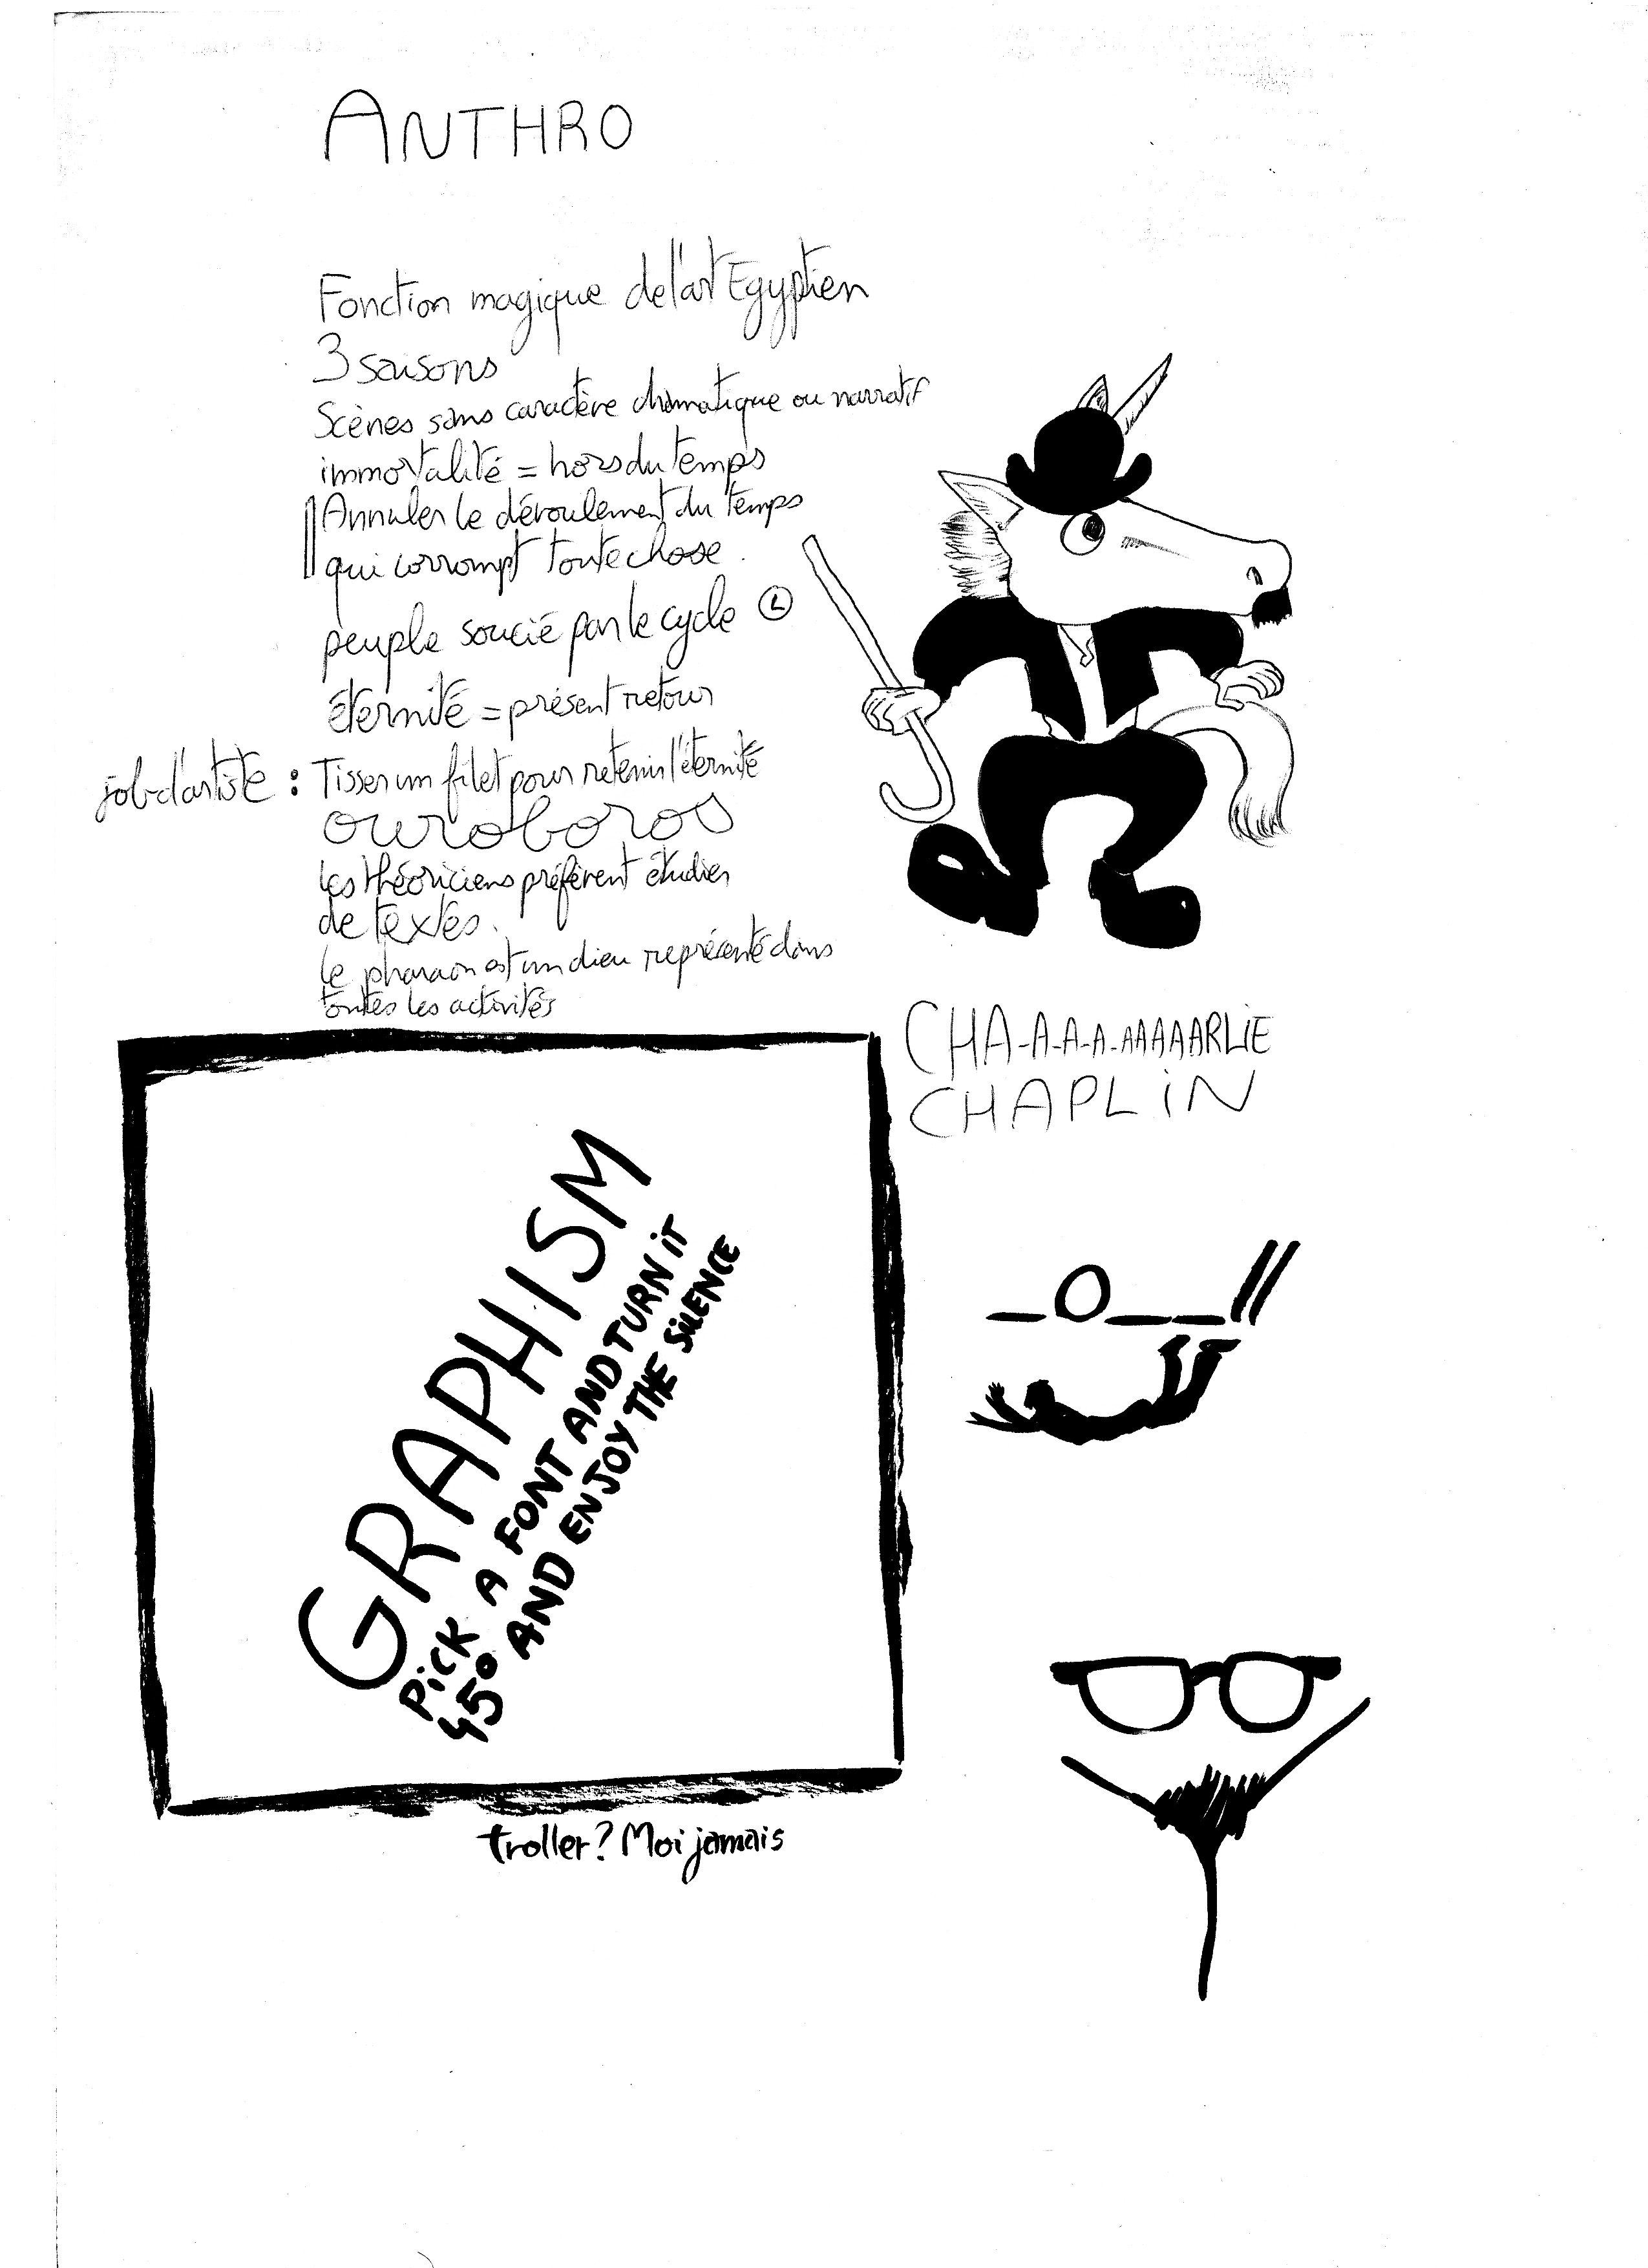 ANTHRO
Fonction magique de l'art Egyptien
3 saisons
Scènes sans caractère dramatique ou narratif
immortalité = hors du temps
Annuler le déroulement du temps
qui corrompt toute chose.
peuple soucié par le cycle
éternité = présent retour
job d'artiste : Tisser un filet pour retenir l'éternité
ouroboros
les théoriciens préfèrent étudier
de textes.
le pharaon est un dieu représenté dans
toutes les activités
CHA-A-A-A-AAAAARLIE
CHAPLIN
GRAPHISM
PICK A FONT AND TURN IT
45° AND ENJOY THE SILENCE
troller? Moi jamais